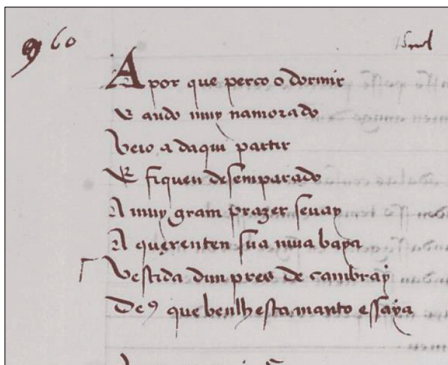 960
A por que perco o dormir
E ando muy namorado
Veio a daqui partir
E fiquen desemparado
A muy gram prazer se uay
A querenten sua mua baya
Vestida dun pres de cambray
De9 que ben lhesta manto essaya